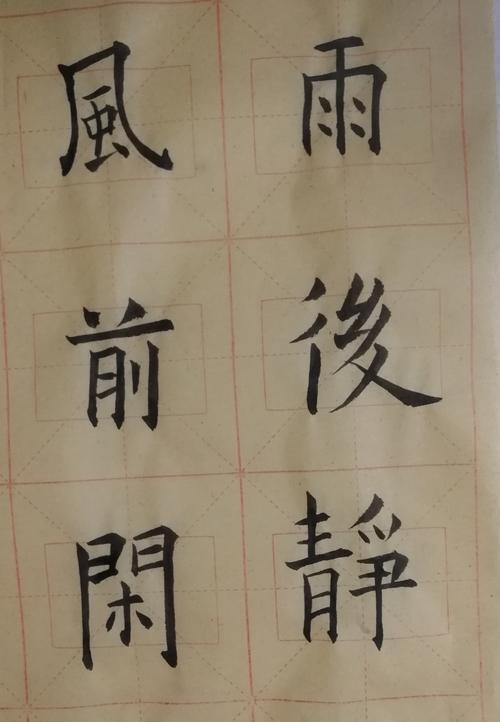 雨後靜
風前閑